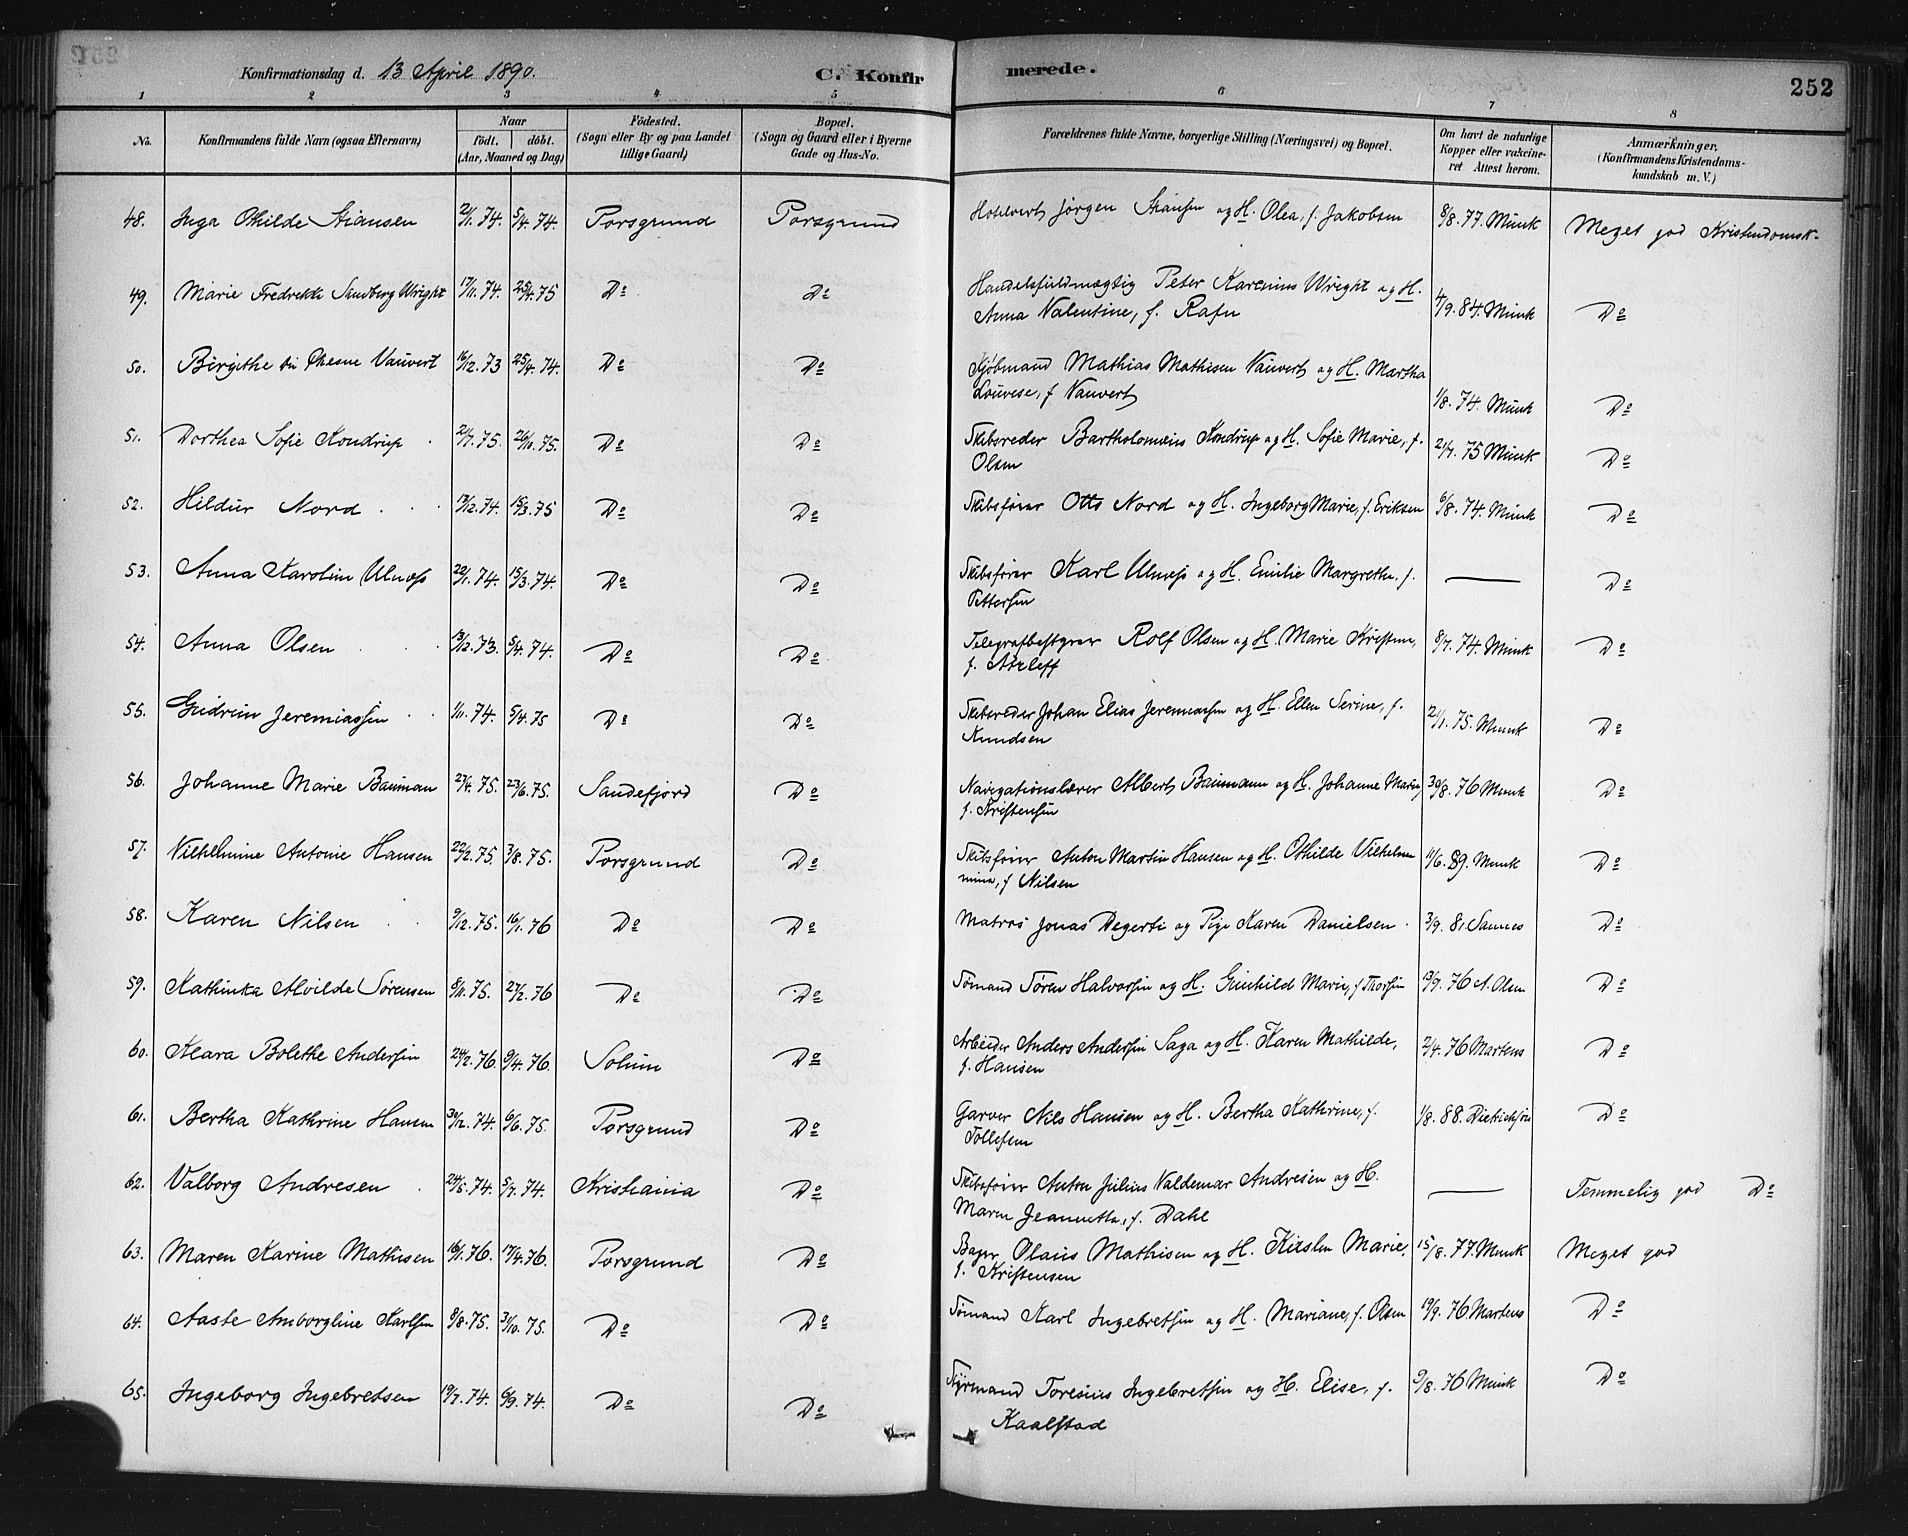 Konfirmationsdag d. 13 April 1890.
C. Konfir merede.
252
1 2 3 4 5 6 7 8
No.
Konfirmandens fulde Navn (ogsaa Efternavn)
Naar
födt. döbt.
(Aar, Maaned og Dag)
Födested.
(Sogn eller By og paa Landet
tillige Gaard)
Bopæl.
(Sogn og Gaard eller i Byerne
Gade og Hus-No.
Forældrenes fulde Navne, borgerlige Stilling (Næringsvei) og Bopæl.
Om havt de naturlige
Kopper eller vakcine-
ret Attest herom.
Anmærkninger.
(Konfirmandens Kristendoms-
kundskab m. V.)
48. Inga Othilde Stiansen 2/1. 74. 5/4. 74. Porsgrund Porsgrund Hotelvert Jörgen Stiansen og H. Olea, f. Jakobsen 8/8. 77. Munk Meget god Kristendomsk.
49. Marie Fredrekke Sandberg Wright 17/11. 74. 25/4. 75 Do Do Handelsfuldmægtig Peter Karenius Wright og H.
Anna Valentine, f. Rafn 4/9. 84. Munk Do
50. Birgithe Vauvert 16/12. 73 25/4. 74. Do Do Kjöbmand Mathias Mathisen Vauvert og H. Martha
Lovise, f Vauvert 1/8. 74. Munk Do
51. Dorthea Sofie Kondrup 24/7. 75. 26/10. 75. Do Do Skibsreder Bartholomæus Kondrup og H. Sofie Marie, f.
Olsen 75 Munk Do
52. Hildur Nord 17/12. 74. 15/3. 75 Do Do Skibsförer Otto Nord og H. Ingeborg Marie, f. Eriksen 6/8. 74. Munk Do
53. Anna Karoline Ulnæss 22/1. 74. 15/3. 74. Do Do Skibsförer Karl Ulnæss og H. Emilie Margrethe, f.
Pettersen — Do
54. Anna Olsen 13/12. 73. 5/4. 74. Do Do Telegrafbestyrer Rolf Olsen og H. Marie Kristine,
f. 8/7. 74. Munk Do
55. Gudrun Jeremiassen 1/11. 74. 5/4. 75 Do Do Skibsreder Johan Elias Jeremiassen og H. Ellen Serine, f.
Knudsen 2/1. 75. Munk Do
56. Johanne Marie Bauman 27/4. 75. 23/6. 75. Sandefjord Do Navigationslærer Albert Baumann og H. Johanne Marie,
f. Kristensen 30/8. 76 Munk Do
57. Vilhelmine Antonie Hansen 22/2. 75. 3/8. 75. Porsgrund Do Skibsförer Anton Martin Hansen og H. Othilde Vilhelm
mine, f Nilsen 11/6. 89. Munk Do
58. Karen Nilsen 9/12. 75. 16/1. 76 Do Do Matros Jonas Degerti og Pige Karen Danielsen. 3/9. 81. Sannes Do
59. Kathinka Alvilde Sörensen 8/11. 75. 27/2. 76 Do Do Sömand Sören Halvorsen og H. Gunhild Marie, f Thorsen 13/9. 76 A. Olsen Do
60. Klara Bolethe Andersen 24/2. 76. 9/4. 76. Solum Do Arbeider Anders Andersen Saga og H. Karen Mathilde,
f. Hansen 2/4. 76 Martens Do
61. Bertha Kathrine Hansen 30/12. 74. 6/6. 75. Porsgrund Do Garver Nils Hansen og H. Bertha Kathrine, f.
Tollefsen 1/8. 88. Dietrichson Do
62. Valborg Andresen 24/5. 74. 5/7. 74. Kristiania Do Skibsförer Anton Julius Valdemar Andresen og H.
Maren Jeannette, f. Dahl — Temmelig god Do
63. Maren Karine Mathisen 16/1. 76. 17/4. 76. Porsgrund Do Bager Olaus Mathisen og H. Kirsten Marie,
f. Kristensen 15/8. 77. Munk Meget god
64. Aaste Amborgline Karlsen 8/8. 75. 31/10. 75. Do Do Sömand Karl Ingebretsen og H. Mariane, f. Olsen 19/9. 76. Martens Do
65. Ingeborg Ingebretsen 19/7. 74. 6/9. 74. Do Do Styrmand Toresius Ingebretsen og H. Elise, f.
Kaalstad 9/8. 76 Munk Do